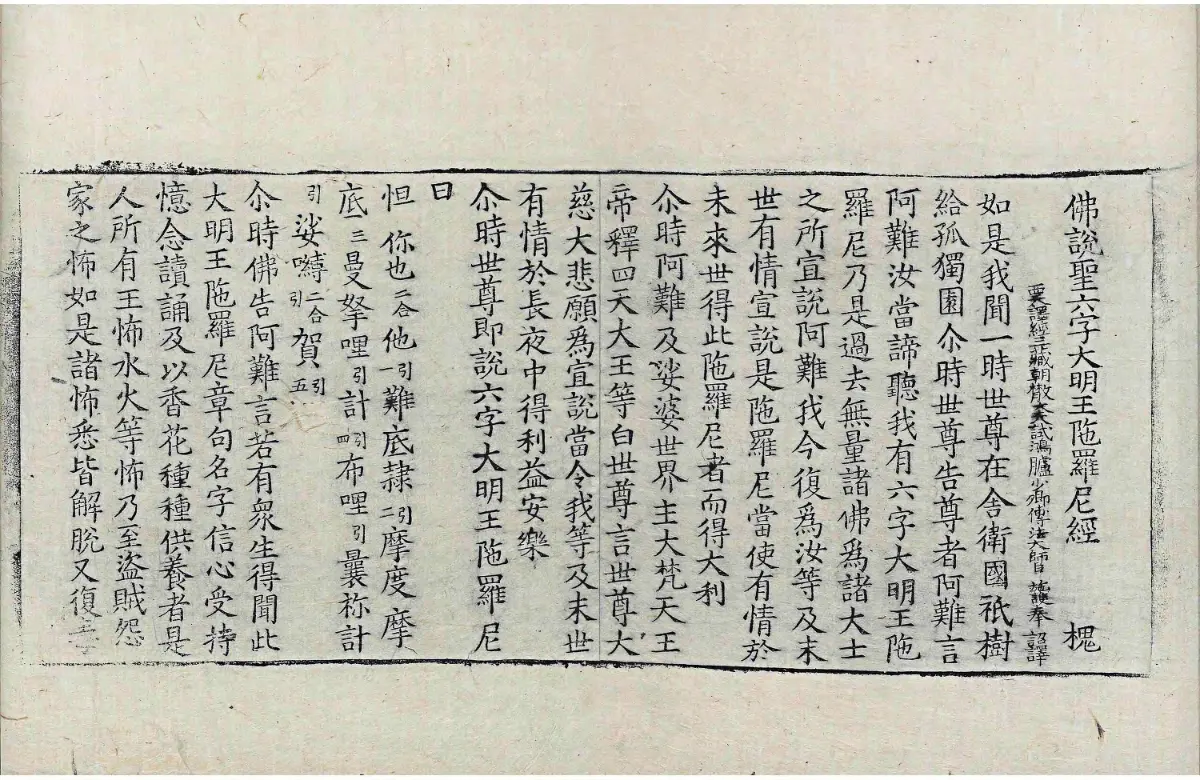 佛說聖六字大明王陁羅尼經 槐
西天譯經三藏朝散大夫試鴻臚少卿傳法大師臣施護奉 詔譯
如是我聞一時世尊在舍衛國祇樹
給孤獨園尒時世尊告尊者阿難言
阿難汝當諦聽我有六字大明王陁
羅尼乃是過去無量諸佛爲諸大士
之所宣說阿難我今復爲汝等及末
世有情宣說是陁羅尼當使有情於
未來世得此陁羅尼者而得大利
尒時阿難及娑婆世界主大梵天王
帝釋四天大王等白世尊言世尊大
慈大悲願爲宣說當令我等及末世
有情於長夜中得利益安樂
尒時世尊即說六字大明王陁羅尼
曰
怛你也二合他一引難底隷二引摩度摩
底三曼拏哩引計四引布哩引曩祢計
引娑嚩二合引賀引五
尒時佛告阿難言若有衆生得聞此
大明王陁羅尼章句名字信心受持
憶念讀誦及以香花種種供養者是
人所有王怖水火等怖乃至盜賊怨
家之怖如是諸怖悉皆解脫又復